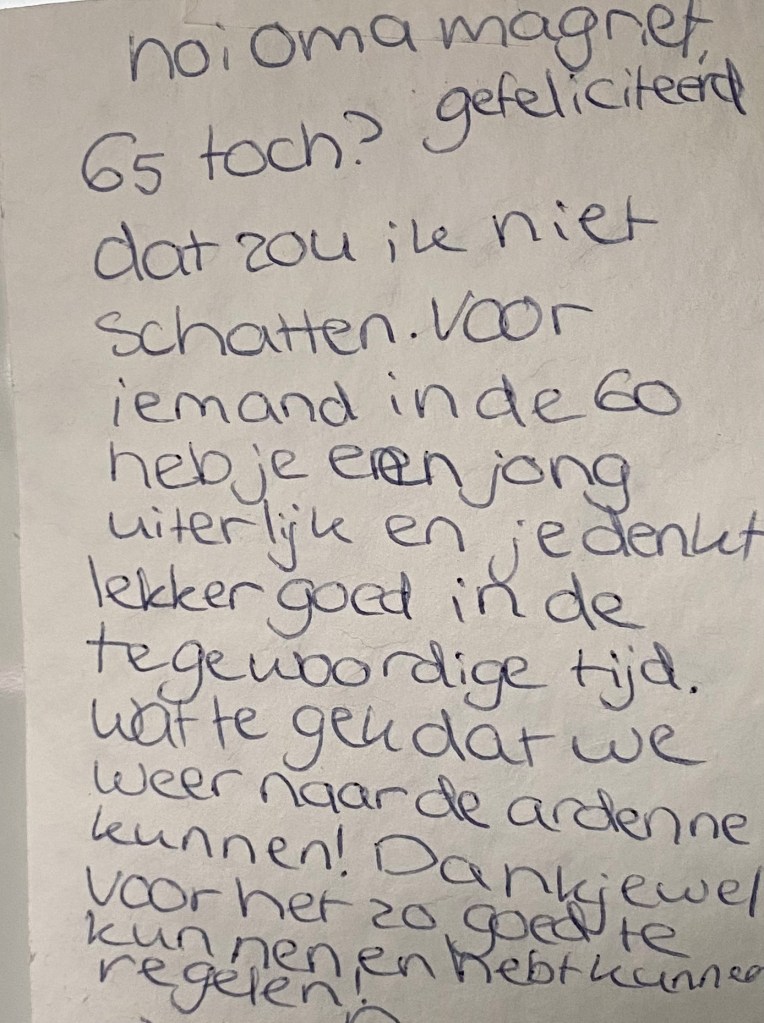 hoi oma magriet,
gefeliciteerd
65 toch?
dat zou ik niet
schatten. Voor
iemand in de 60
heb je een jong
uiterlijk en je denkt
lekker goed in de
tegewoordige tijd.
wat te gek dat we
weer naar de ardenne
kunnen! Dankjewel
voor het zo goed te
kunnen en hebt kunnen
regelen!